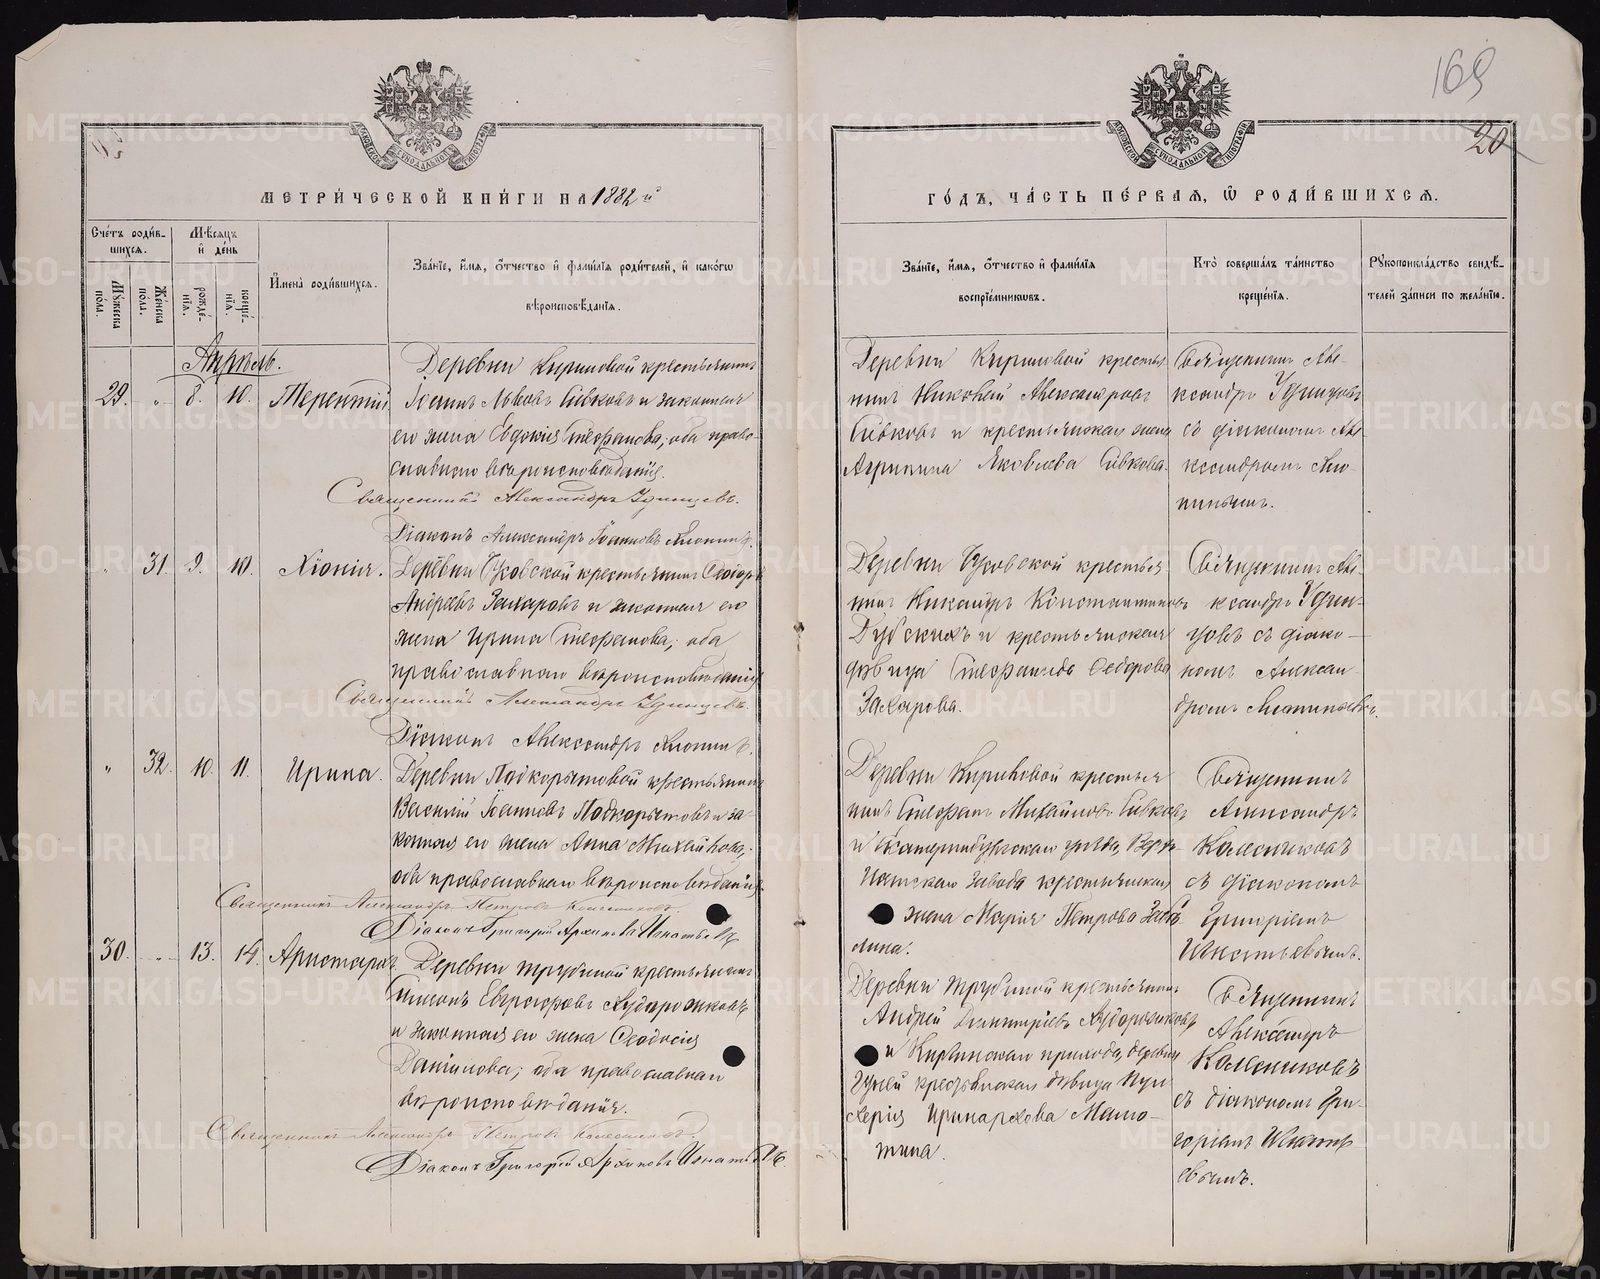 169
20
МЕТРИ́ЧЕСКОЙ КНИ́ГИ НА 1882 й
ГО́ДЪ, ЧА́СТЬ ПЕ́РВАЯ, Ѡ РОДИ́ВШИХСЯ.
Сче́тъ роди́в-
шихся.
Мѣсяцъ
и де́нь
Мꙋжеска
по́ла.
Же́нска
по́ла.
рожде́-
нія.
креще́-
нія.
И҆мена̀ роди́вшихся.
Зва́ніе, и҆́мя, ѻ҆́тчество и҆ фами́лія роди́телей, и҆ како́гѡ
вѣроисповѣ́данія.
Зва́ніе, и҆́мя, ѻ҆́тчество и҆ фами́лія
воспріе́мникѡвъ.
Кто̀ соверша́лъ та́инство
креще́нія.
Рꙋкоприкла́дство свидѣ́-
телей за́писи по жела́нію.
Апрѣль.
29. „ 8. 10. Терентій
Деревни Кириловой крестьянинъ
Іоаннъ Львовъ Сивковъ и законная
его жена Евдокія Стефанова, оба право-
славнаго вѣроисповѣданія.
Священникъ Александръ Удинцевъ.
Діаконъ Александръ Іоанновъ
Деревни Кириловой крестья
нинъ Александровъ
Сивковъ и крестьянская жена
Агрипина Яковлева Сивкова.
Священникъ Але-
ксандръ Удинцовъ
съ діакономъ Але
ксандромъ
„ 31. 9. 10. Хіонія.
крестьянинъ Ѳеодоръ
Андреевъ Захаровъ и законная его
жена Ирина Стефанова; оба
православнаго вѣроисповѣданія
Священникъ Александръ Удинцевъ.
Діаконъ Александръ
крестья
нинъ Никандръ Константиновъ
и крестьянская
дѣвица Ѳедорова
Захарова.
Священникъ Але
ксандръ Удин-
цовъ съ діако-
номъ Алексан
дромъ
„ 32. 10. 11. Ирина.
Деревни Подкорытовой крестьянинъ
Василій Іоанновъ Подкорытовъ и за-
конная его жена Анна Михайлова,
оба православнаго вѣроисповѣданія.
Священникъ Александръ Петровъ Колесниковъ.
Діаконъ Григорій Архиповъ Игнатьевъ
Деревни Кириловой крестья
нинъ Стефанъ Михайловъ Сивковъ
и Екатеринбургскаго уѣзда, Верхъ
Исетскаго завода крестьянская
жена Марія Петрова
лина.
Священникъ
Александръ
Колесниковъ
съ діакономъ
Григоріемъ
Игнатьевымъ.
30. „ 13. 14. Аристархъ
Деревни Трубиной крестьянинъ
Симонъ Евграфовъ Худорожковъ
и законная его жена Ѳеодосія
Даніилова; оба православнаго
вѣроисповѣданія.
Священникъ Александръ Петровъ Колесниковъ.
Діаконъ Григорій Архиповъ Игнатьевъ.
Деревни Трубиной крестьянинъ
Андрей Димитріевъ Худорожковъ
и прихода, деревни
крестьянская дѣвица Пул-
херія Иринархова Мамо-
тина.
Священникъ
Александръ
Колесниковъ
съ діакономъ Гри-
горіемъ Игнатье
вымъ.